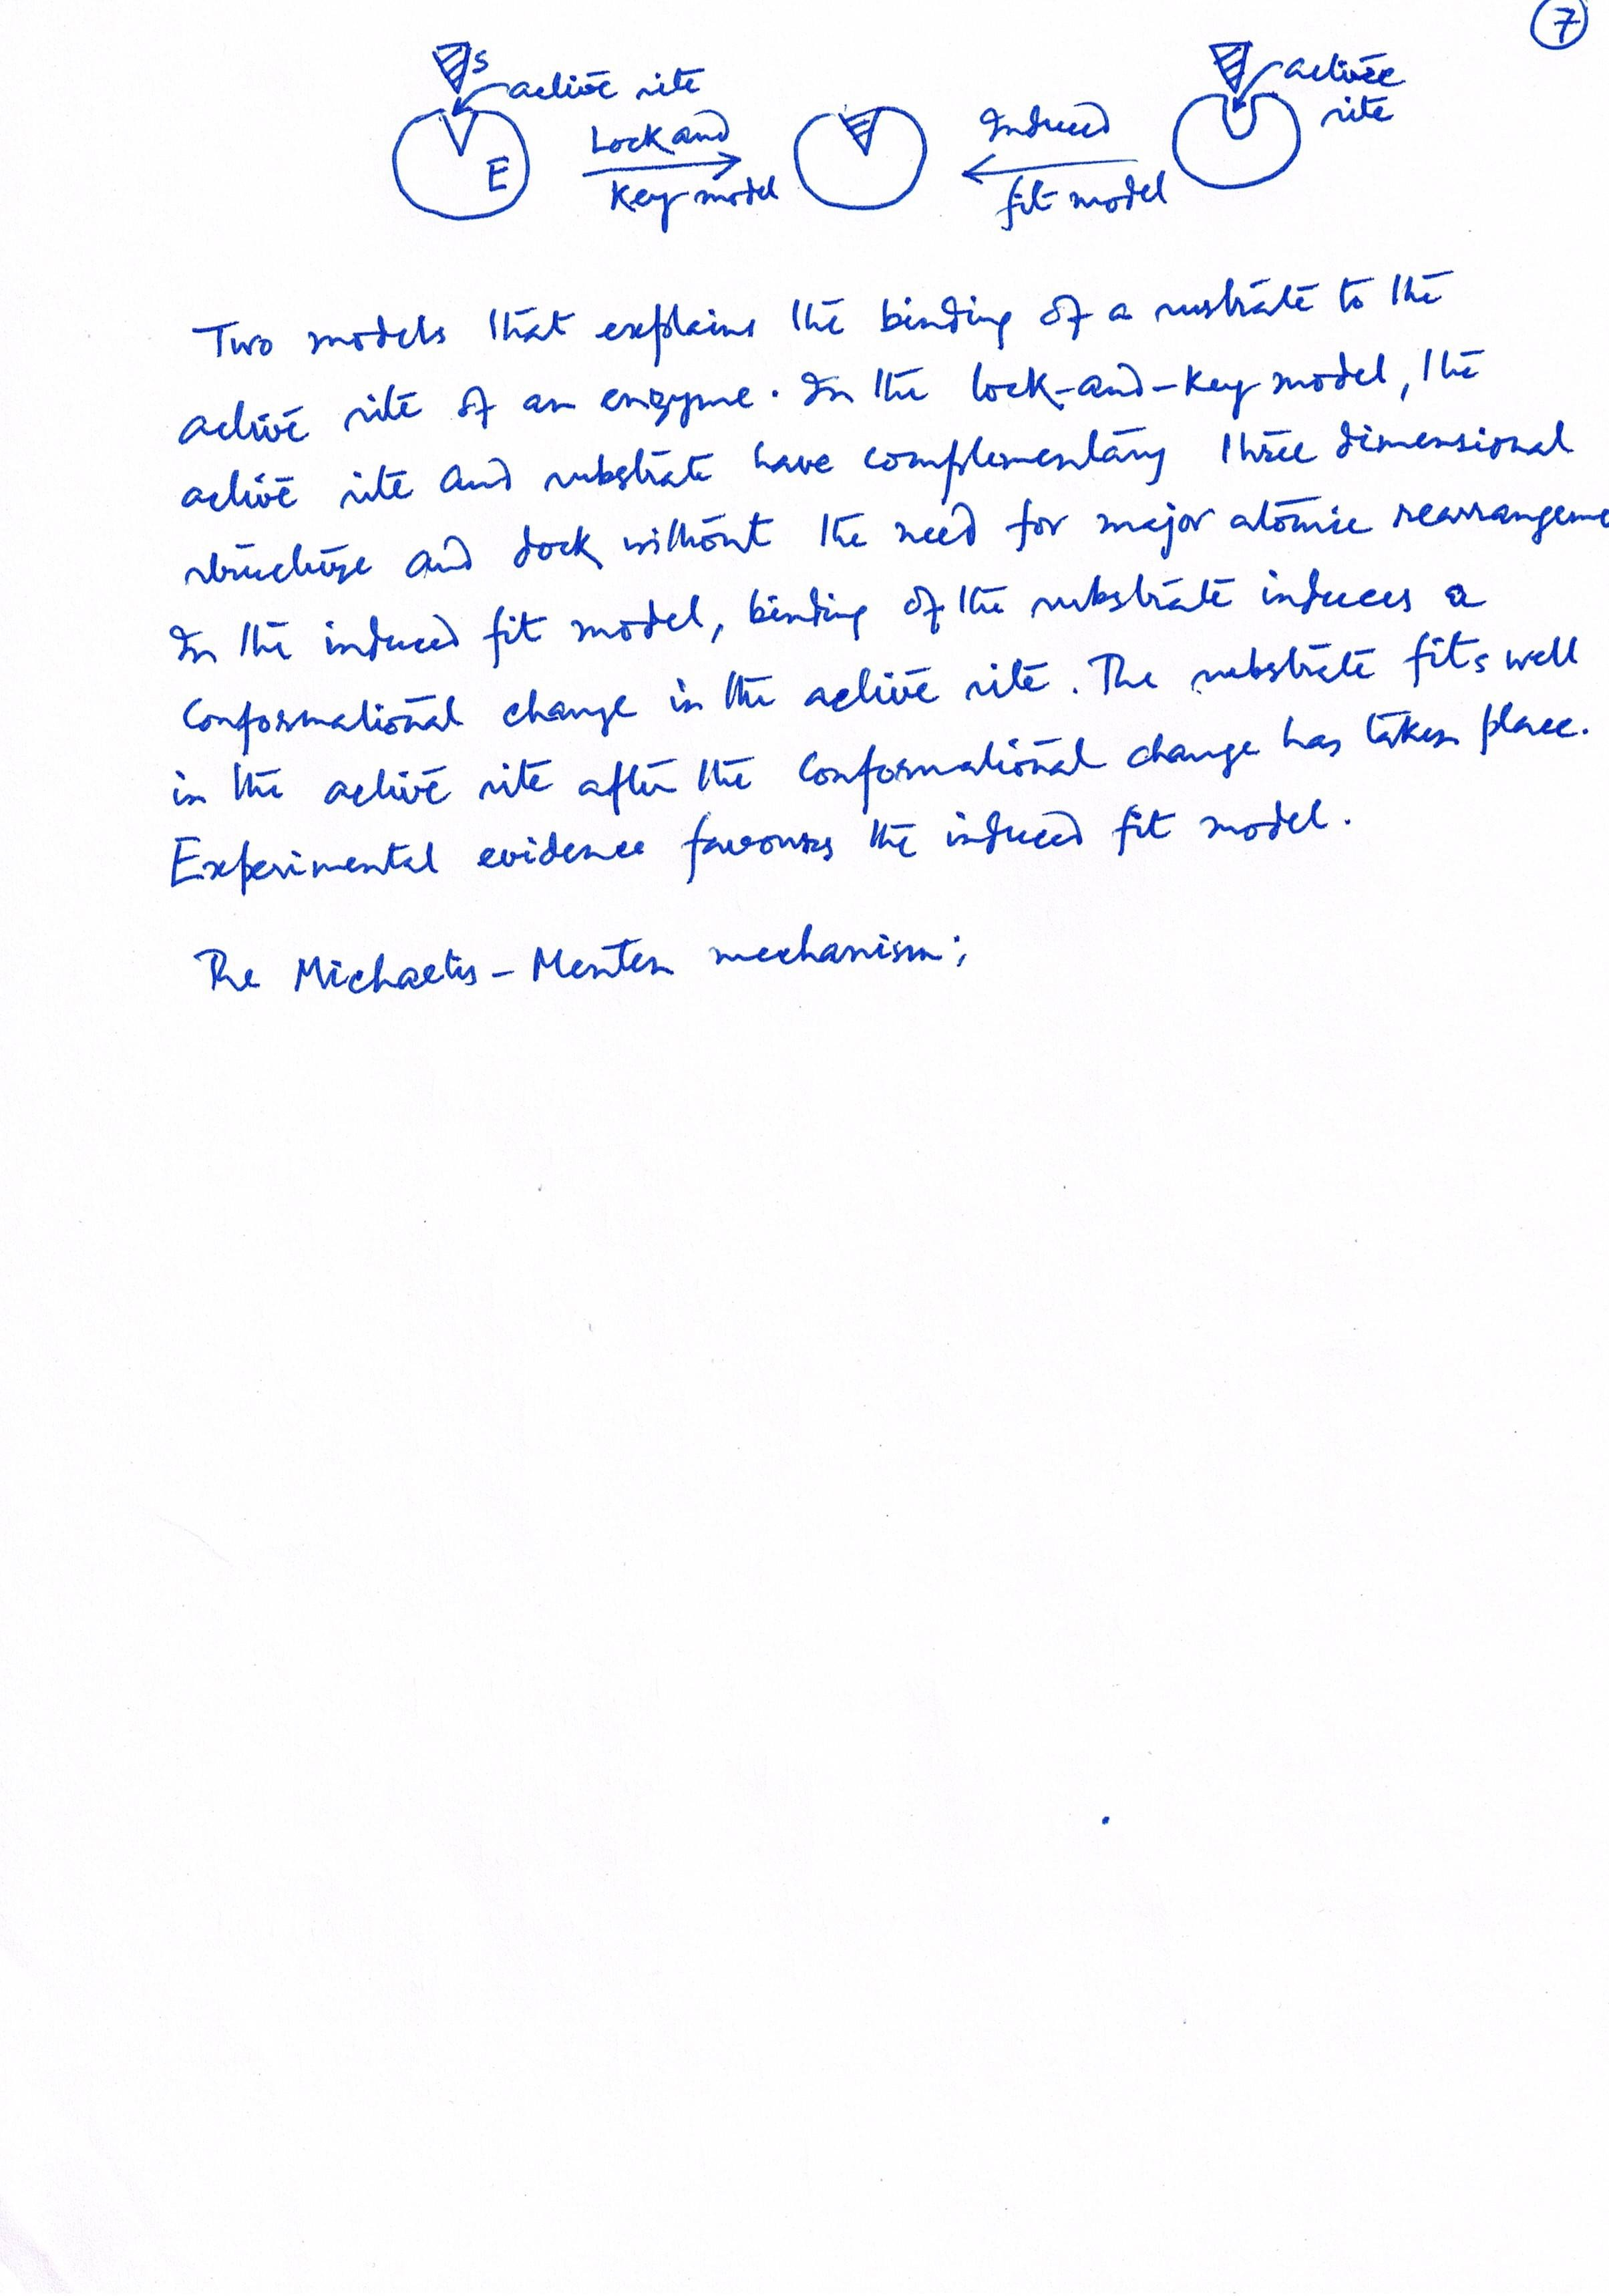 7
S
active site
E
Lock and
Key model
Induced
fit model
active
site
Two models that explains the binding of a susbtrate to the
active site of an enzyme. In the lock-and-key model, the
active site and substrate have complementary three dimensional
structure and dock without the need for major atomic rearrangeme
In the induced fit model, binding of the substrate induces a
conformational change in the active site. The substrate fits well
in the active site after the conformational change has taken place.
Experimental evidence favours the induced fit model.
The Michaelis-Menten mechanism;